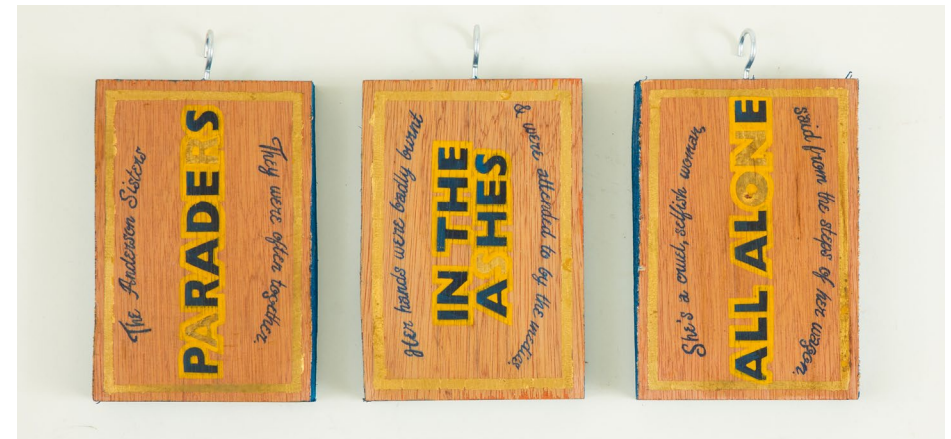 The Anderson Sisters
PARADERS
They were often together.
Her hands were badly burnt
IN THE
ASHES
& were attended to by the medics
She's a cruel, selfish woman,
ALL ALONE
said from the steps of her wagon.